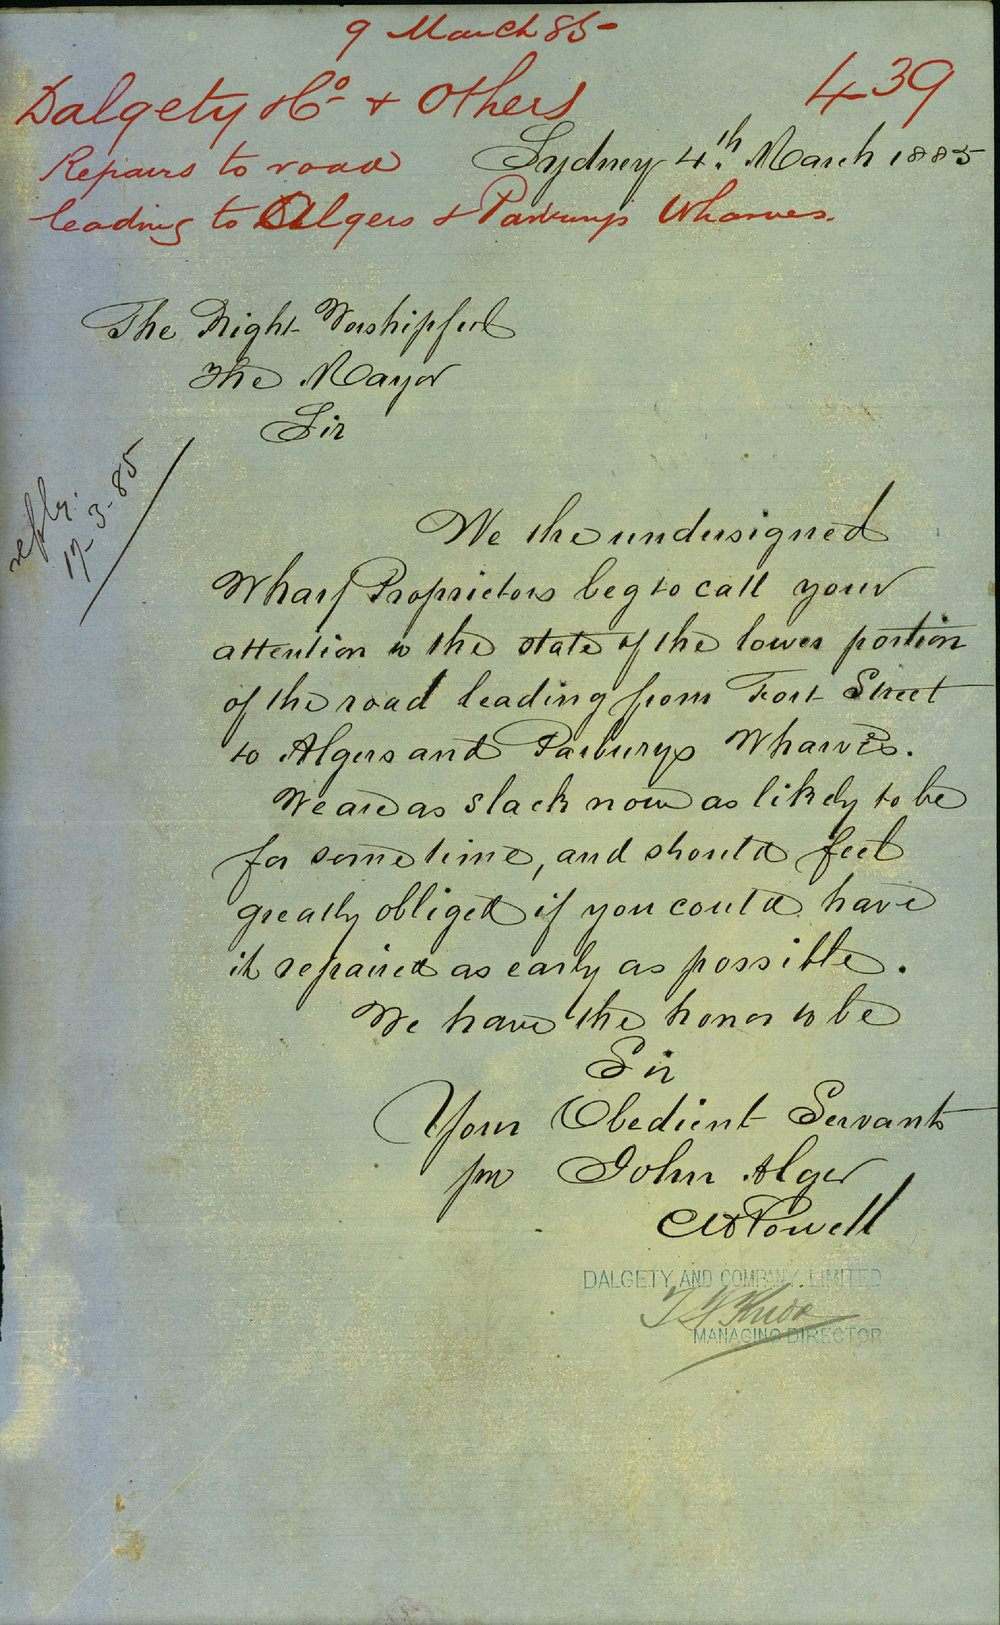 9 March 85-
Dalgety & Co & Others
439
Repairs to road
Sydney 4th March 1885
leading to Algers & Parburys Wharves.
The Right Worshipful
The Mayor
Sir
reply.
17-3-85
We the undersigned
Wharf Proprietors beg to call your
attention to the state of the lower portion
of the road leading from Fort Street
to Algers and Parburys Wharves.
We are as slack now as likely to be
for some time, and should feel
greatly obliged if you could have
it repaired as early as possible.
We have the honor to be
Sir
Your Obedient Servants
pro John Alger
Powell
DALGETY AND COMPANY, LIMITED
MANAGING DIRECTOR